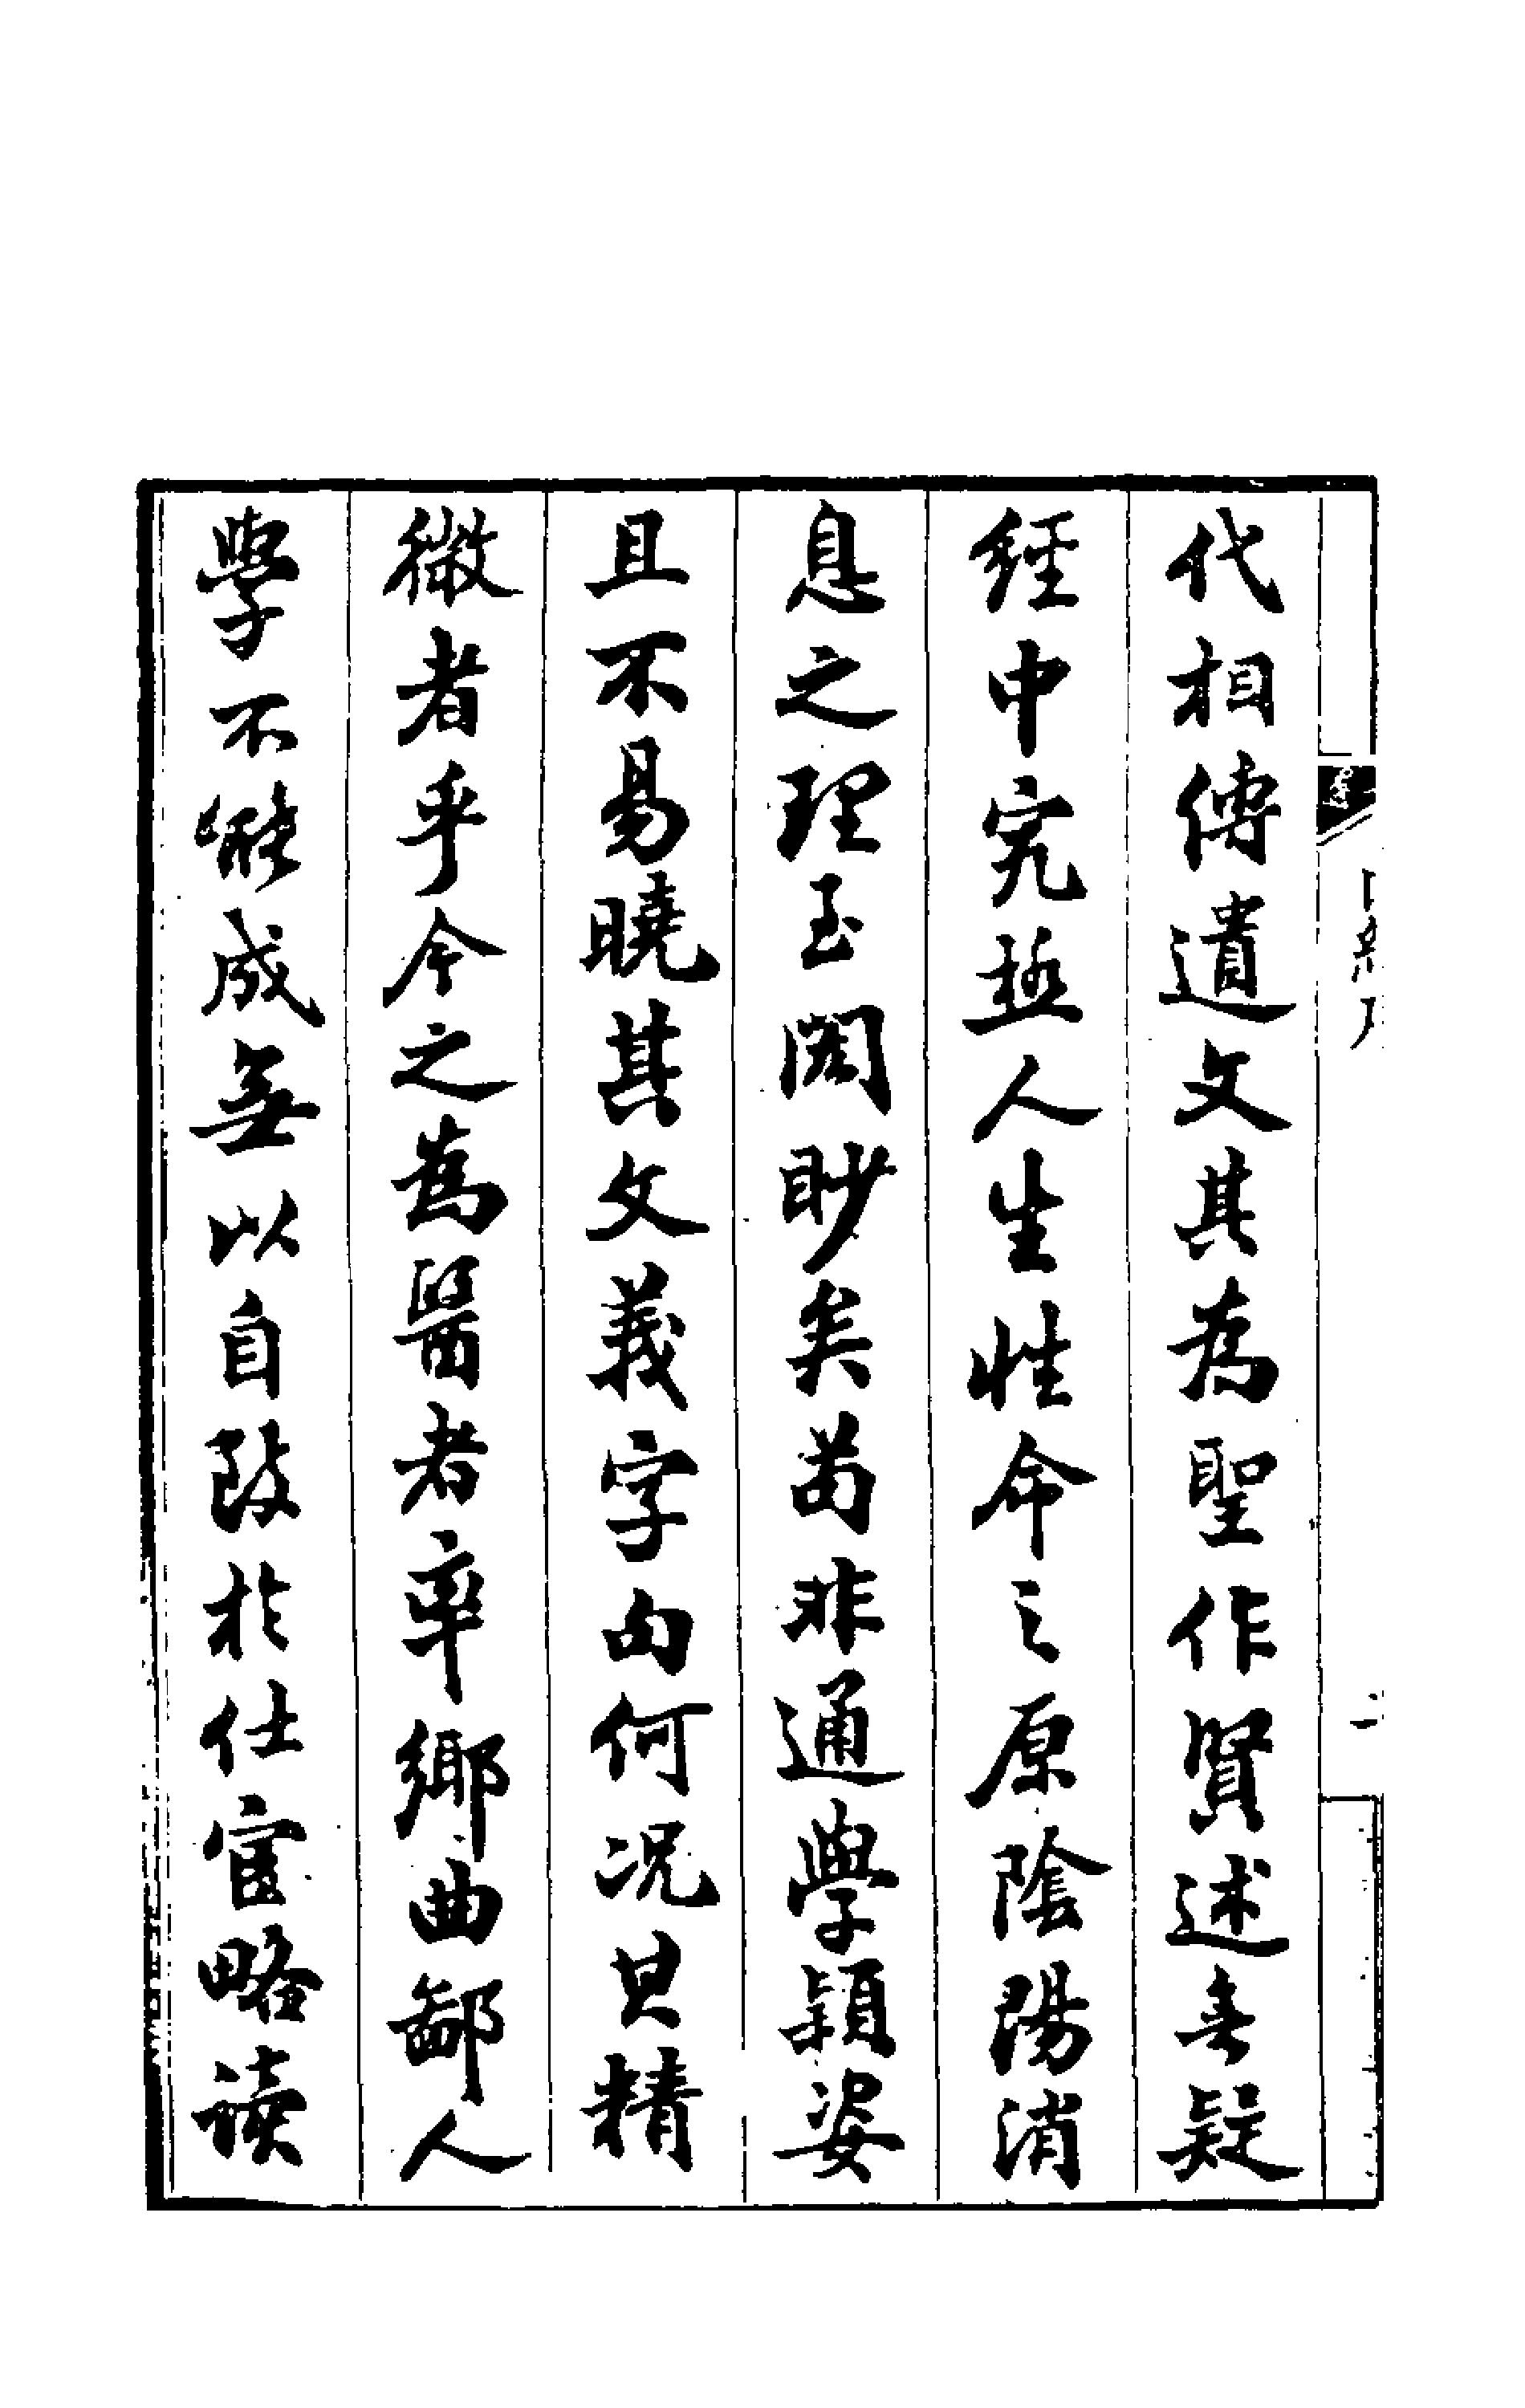 代相傳遺文其為聖作賢述無疑
經中究極人生性命之原陰陽消
息之理至閎眇矣苟非通學穎姿
且不易曉其文義字句何況其精
微者乎今之為醫者率鄉曲鄙人
學不能成無以自致於仕宦略讀
二